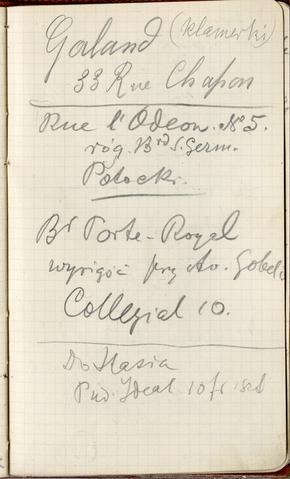 Galand (klamerki)
33 Rue Chapon
Rue l'Odeon. № 5.
róg. Brd S. Germ.
Potocki.
Bd Porte-Royal
przy Av. Gobel
Collegial 10.
Do Stasia
Pud. Ideal 10 fr